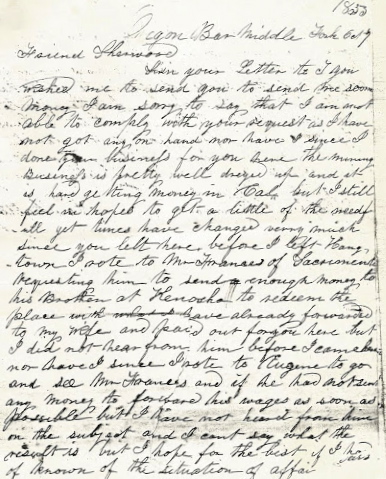 1853
Bar Middle Fork Oct 9
Friend Sherwood
In your Letter to I you
wished me to send you to send me some
money I am sorry to say that I am not
able to comply with your request as I have
not got any on hand nor have I since I
done business for you here the mining
Business is pretty well dryed up and it
is hard getting money in Cal. but I still
feel in hopes to get a little of the needf
ull yet times have changed verry much
since you left here before I left Hang
town I rote to Mr Frances of Sacramento
requesting him to send enough money to
his Brother at Kenosha to redeem the
place with what is have already forwarded
to my wife and paid out for you here but
I did not hear from him before I came here
nor have I since I rote to Eugene to go
and see Mr Frances and if he had not sent
any money to forward his wages as soon as
possible but I have not heard from him
on the subject and I cant say what the
result is but I hope for the best if I ha
of known of the situation of affai
airs